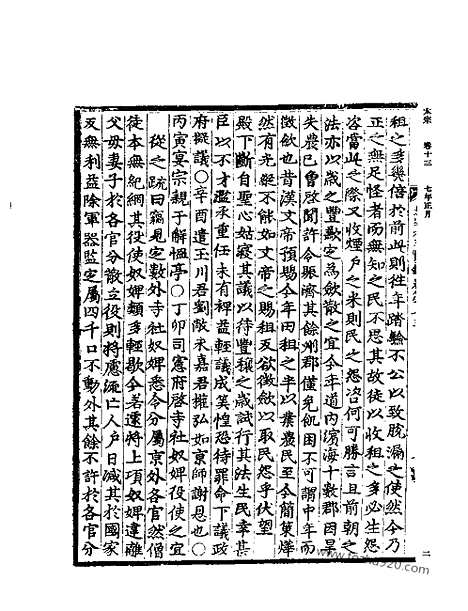 太宗 卷十三 七年正月
租之多幾倍於前此則往年踏驗不公以致脫漏之使然今乃
正之無足怪者而無知之民不思其故徒以收租之多必生怨
咨當此之際又收煙戶之米則民之怨咨何可勝言且前朝之
法亦以歲之豐歉定爲斂散之宜今年道內濱海十數郡因旱
失農已曾啓聞許令賑濟其餘州郡僅免飢困不可謂中年而
徵斂也昔漢文帝預賜今年田租之半以業農民至今簡策燁
然有光縱不能如文帝之賜租又欲徵斂以取民怨乎伏望
殿下斷自聖心姑寢其議以待豐穰之歲試行其法生民幸甚
臣以不才濫承重任未有裨益輕議成策惶恐待罪命下議政
府擬議○辛酉遣玉川君劉敞永嘉君權弘如京師謝恩也○
丙寅宴宗親于解慍亭○丁卯司憲府啓寺社奴婢役使之宜
從之疏曰竊見定數外寺社奴婢悉令分屬京外各官然僧
徒本無紀綱其役使奴婢類多輕歇今若還將上項奴婢違離
父母妻子於各官分散立役則將慮逃亡人戶日減其於國家
又無利益除軍器監定屬四千口不動外其餘不許於各官分
二